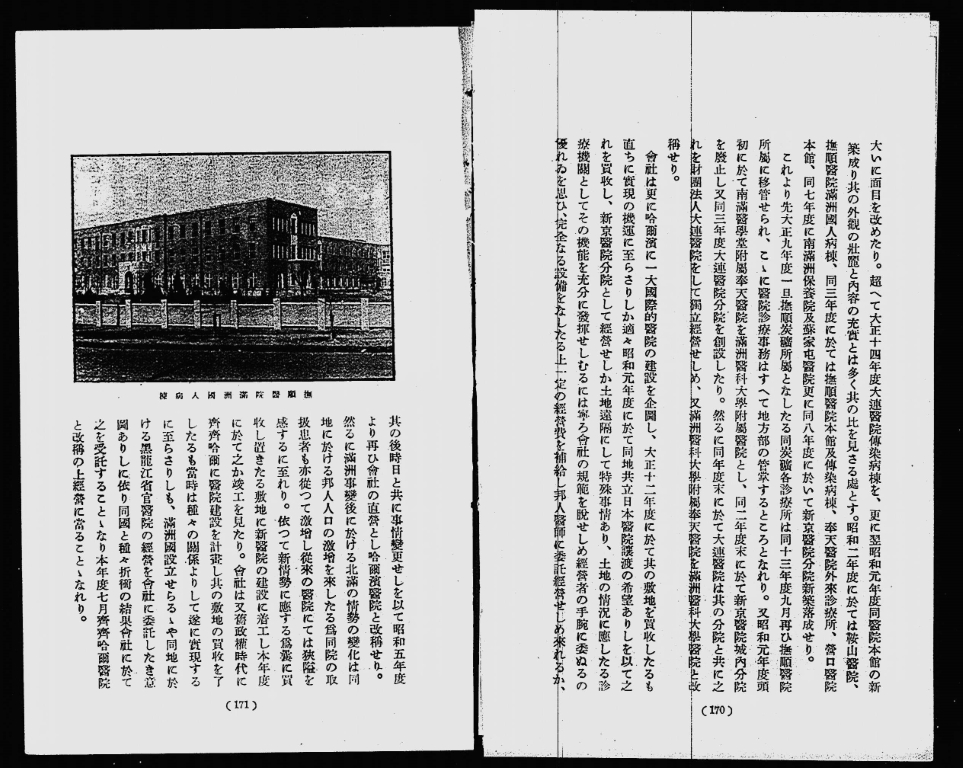 大いに面目を改めたり。超へて大正十四年度大連醫院傳染病棟を、更に翌昭和元年度同醫院本館の新
築成り其の外觀の壯麗と內容の充實とは多く其の比を見さる處とす。昭和二年度に於ては鞍山醫院、
撫順醫院滿洲國人病棟、同三年度に於ては撫順醫院本館及傳染病棟、奉天醫院外來診療所、營口醫院
本館、同七年度に南滿洲保養院及蘇家屯醫院更に同八年度に於いて新京醫院分院新築落成せり。
これより先大正九年度一旦撫順炭礦所屬となしたる同炭礦各診療所は同十三年度九月再ひ撫順醫院
所屬に移管せられ、こゝに醫院診療事務はすへて地方部の管掌するところとなれり。又昭和元年度頭
初に於て南滿醫學堂附屬奉天醫院を滿洲醫科大學附屬醫院とし、同二年度末に於て新京醫院城內分院
を廢止し又同三年度大連醫院分院を創設したり。然るに同年度末に於て大連醫院は其の分院と共に之
れを財團法人大連醫院をして獨立經營せしめ、又滿洲醫科大學附屬奉天醫院を滿洲醫科大學醫院と改
稱せり。
會社は更に哈爾濱に一大國際的醫院の建設を企圖し、大正十二年度に於て其の敷地を買收したるも
直ちに實現の機運に至らさりしか適々昭和元年度に於て同地共立日本醫院讓渡の希望ありしを以て之
れを買收し、新京醫院分院として經營せしか土地遠隔にして特殊事情あり、土地の情況に應したる診
療機關としてその機能を充分に發揮せしむるには寧ろ會社の規範を脫せしめ經營者の手腕に委ぬるの
優れゐを思ひ、完全なる設備をなしたる上一定の經營費を補給し邦人醫師に委託經營せしめ來れるか、
(170)
撫順醫院滿洲國人病棟
其の後時日と共に事情變更せしを以て昭和五年度
より再ひ會社の直營とし哈爾濱醫院と改稱せり。
然るに滿洲事變後に於ける北滿の情勢の變化は同
地に於ける邦人人口の激增を來したる爲同院の取
扱患者も亦從つて激增し從來の醫院にては狹隘を
感するに至れり。依つて新情勢に應する爲曩に買
收し置きたる敷地に新醫院の建設に着工し本年度
に於て之か竣工を見たり。會社は又舊政權時代に
齊齊哈爾に醫院建設を計畫し其の敷地の買收を了
したるも當時は種々の關係よりして遂に實現する
に至らさりしも、滿洲國設立せらるゝや同地に於
ける黑龍江省官醫院の經營を會社に委託したき意
圖ありしに依り同國と種々折衝の結果會社に於て
之を受託することゝなり本年度七月齊齊哈爾醫院
と改稱の上經營に當ることゝなれり。
(171)